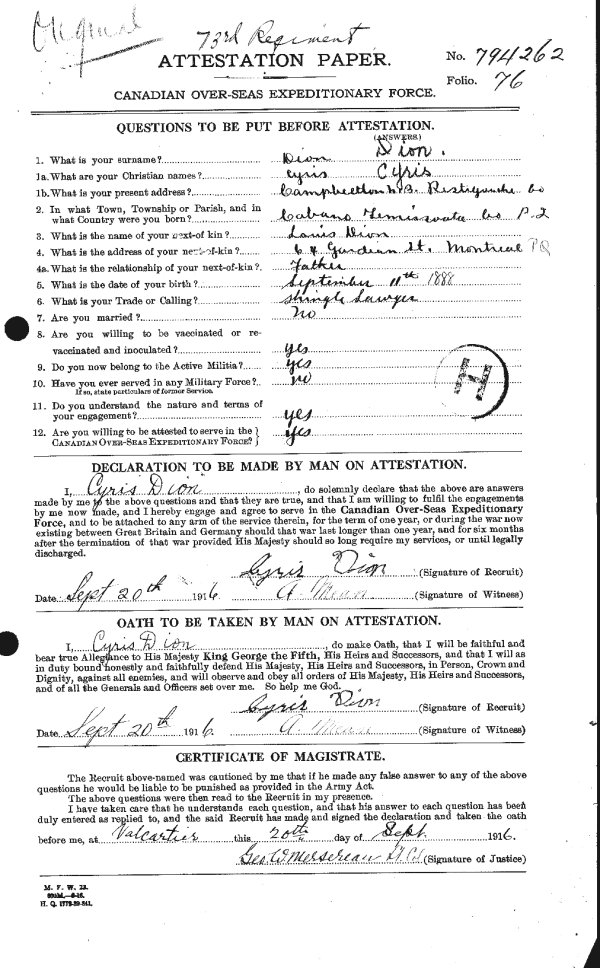 Original
73rd Regiment
ATTESTATION PAPER.
No. 794262
Folio. 76
CANADIAN OVER-SEAS EXPEDITIONARY FORCE.
QUESTIONS TO BE PUT BEFORE ATTESTATION.
(ANSWERS)
1. What is your surname? Dion Dion.
1a. What are your Christian names? Cyris Cyris
1b. What is your present address? Campbellton N.B. Restigouche Co
2. In what Town, Township or Parish, and in
what Country were you born? Cabano Temiscuata Co P.Q
3. What is the name of your next-of kin? Louis Dion
4. What is the address of your next-of-kin? 64 Guardian St. Montreal PQ
4a. What is the relationship of your next-of-kin? Father
5. What is the date of your birth? September 11th 1888
6. What is your Trade or Calling? Shingle Sawyer
7. Are you married? no
8. Are you willing to be vaccinated or re-
vaccinated and inoculated? yes
9. Do you now belong to the Active Militia? yes
10. Have you ever served in any Military Force? no
If so, state particulars of former Service.
H
11. Do you understand the nature and terms of
your engagement? yes
12. Are you willing to be attested to serve in the
CANADIAN OVER-SEAS EXPEDITIONARY FORCE? yes
DECLARATION TO BE MADE BY MAN ON ATTESTATION.
I, Cyris Dion, do solemnly declare that the above are answers
made by me to the above questions and that they are true, and that I am willing to fulfil the engagements
by me now made, and I hereby engage and agree to serve in the Canadian Over-Seas Expeditionary
Force, and to be attached to any arm of the service therein, for the term of one year, or during the war now
existing between Great Britain and Germany should that war last longer than one year, and for six months
after the termination of that war provided His Majesty should so long require my services, or until legally
discharged.
Cyris Dion (Signature of Recruit)
Date Sept 20th 1916. A. (Signature of Witness)
OATH TO BE TAKEN BY MAN ON ATTESTATION.
I, Cyris Dion, do make Oath, that I will be faithful and
bear true Allegiance to His Majesty King George the Fifth, His Heirs and Successors, and that I will as
in duty bound honestly and faithfully defend His Majesty, His Heirs and Successors, in Person, Crown and
Dignity, against all enemies, and will observe and obey all orders of His Majesty, His Heirs and Successors,
and of all the Generals and Officers set over me. So help me God.
Cyris Dion (Signature of Recruit)
Date Sept 20th 1916. A. (Signature of Witness)
CERTIFICATE OF MAGISTRATE.
The Recruit above-named was cautioned by me that if he made any false answer to any of the above
questions he would be liable to be punished as provided in the Army Act.
The above questions were then read to the Recruit in my presence.
I have taken care that he understands each question, and that his answer to each question has been
duly entered as replied to, and the said Recruit has made and signed the declaration and taken the oath
before me, at Valcartier this 20th day of Sept 1916.
Geo W Mersereau Lt. Col (Signature of Justice)
M. F. W. 23.
H. Q. 1772-39-841.